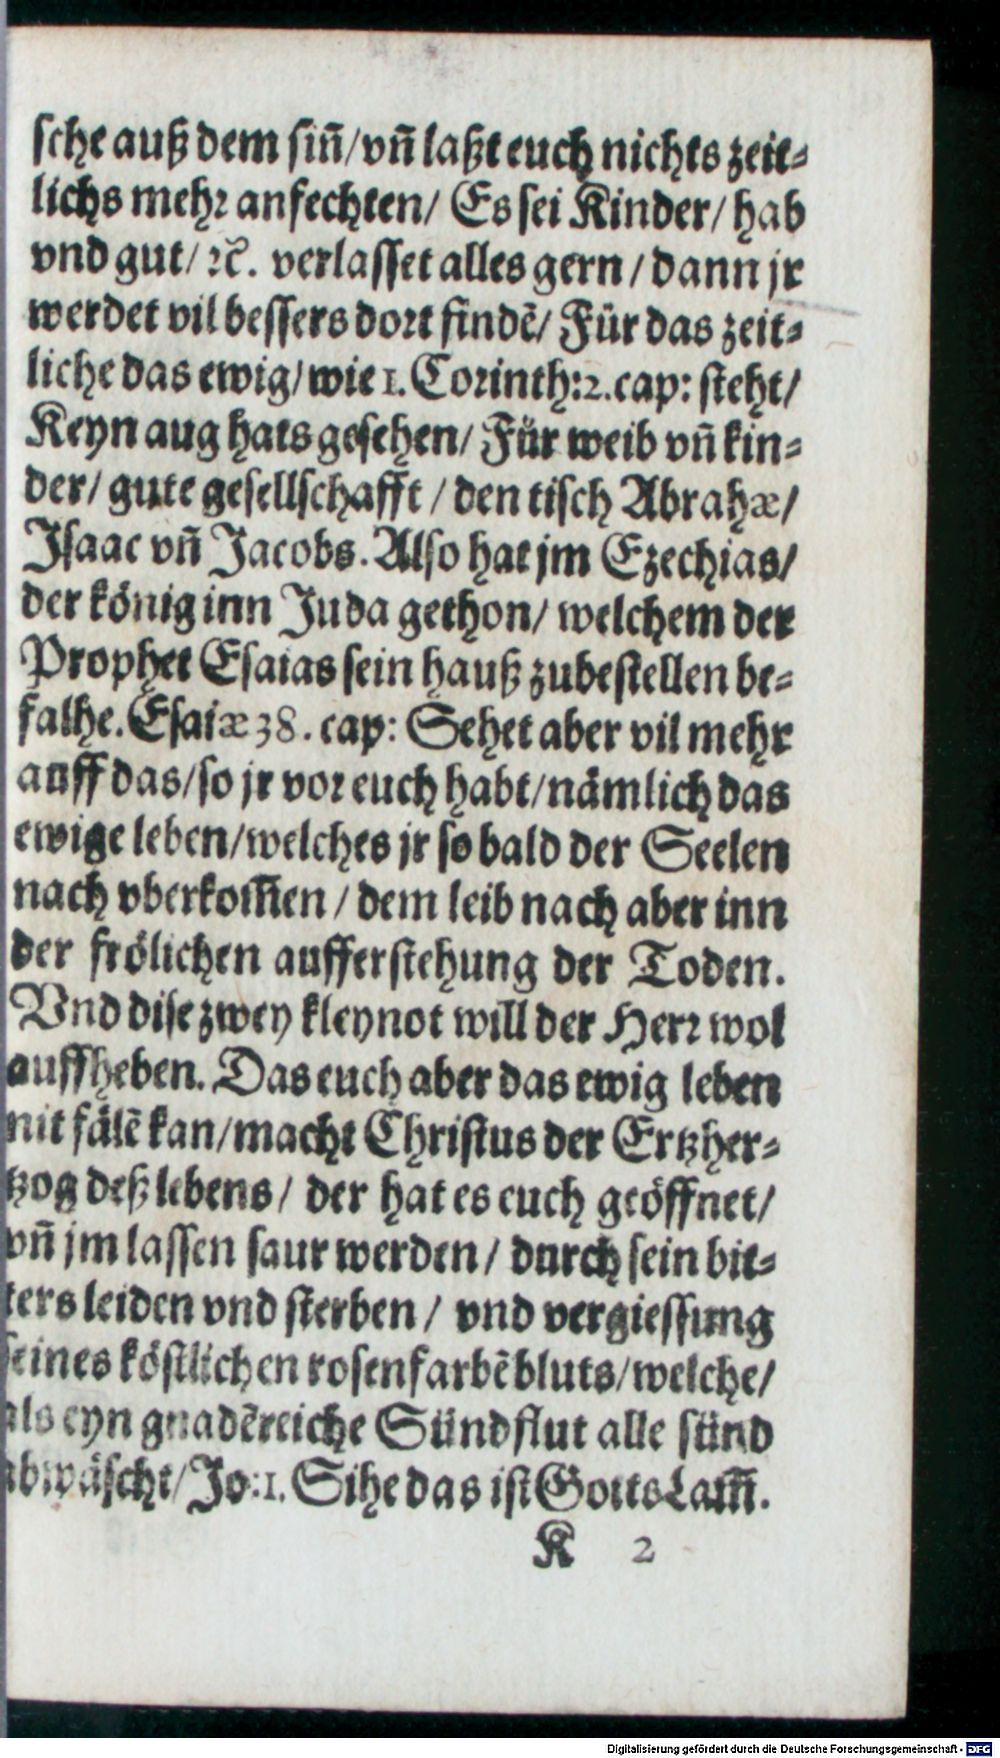 sche auß dem siñ/vñ laßt euch nichts zeit-
lichs mehr anfechten/ Es sei Kinder/ hab
vnd gut/ ꝛc̃. verlasset alles gern / dann jr
werdet vil bessers dort findẽ/ Für das zeit-
liche das ewig/ wie 1. Corinth:2.cap: steht/
Keyn aug hats gesehen/ Für weib vñ kin-
der/ gute gesellschafft / den tisch Abrahæ/
Isaac vñ Jacobs. Also hat jm Ezechias/
der könig inn Juda gethon/ welchem der
Prophet Esaias sein hauß zubestellen be-
falhe. Esaiæ 38. cap: Sehet aber vil mehr
auff das/so jr vor euch habt/nämlich das
ewige leben/welches jr so bald der Seelen
nach vberkom̃en / dem leib nach aber inn
der frölichen aufferstehung der Toden.
Vnd dise zwey kleynot will der Herr wol
auffheben. Das euch aber das ewig leben
nit fälẽ kan/macht Christus der Ertzher-
tzog deß lebens/ der hat es euch geöffnet/
vñ jm lassen saur werden / durch sein bit-
ters leiden vnd sterben / vnd vergiessung
seines köstlichen rosenfarbẽ bluts/welche/
als eyn gnadẽreiche Sündflut alle sünd
abwäscht/ Jo:1. Sihe das ist Gotts Lam̃.
K 2
Digitalisierung gefördert durch die Deutsche Forschungsgemeinschaft - DFG